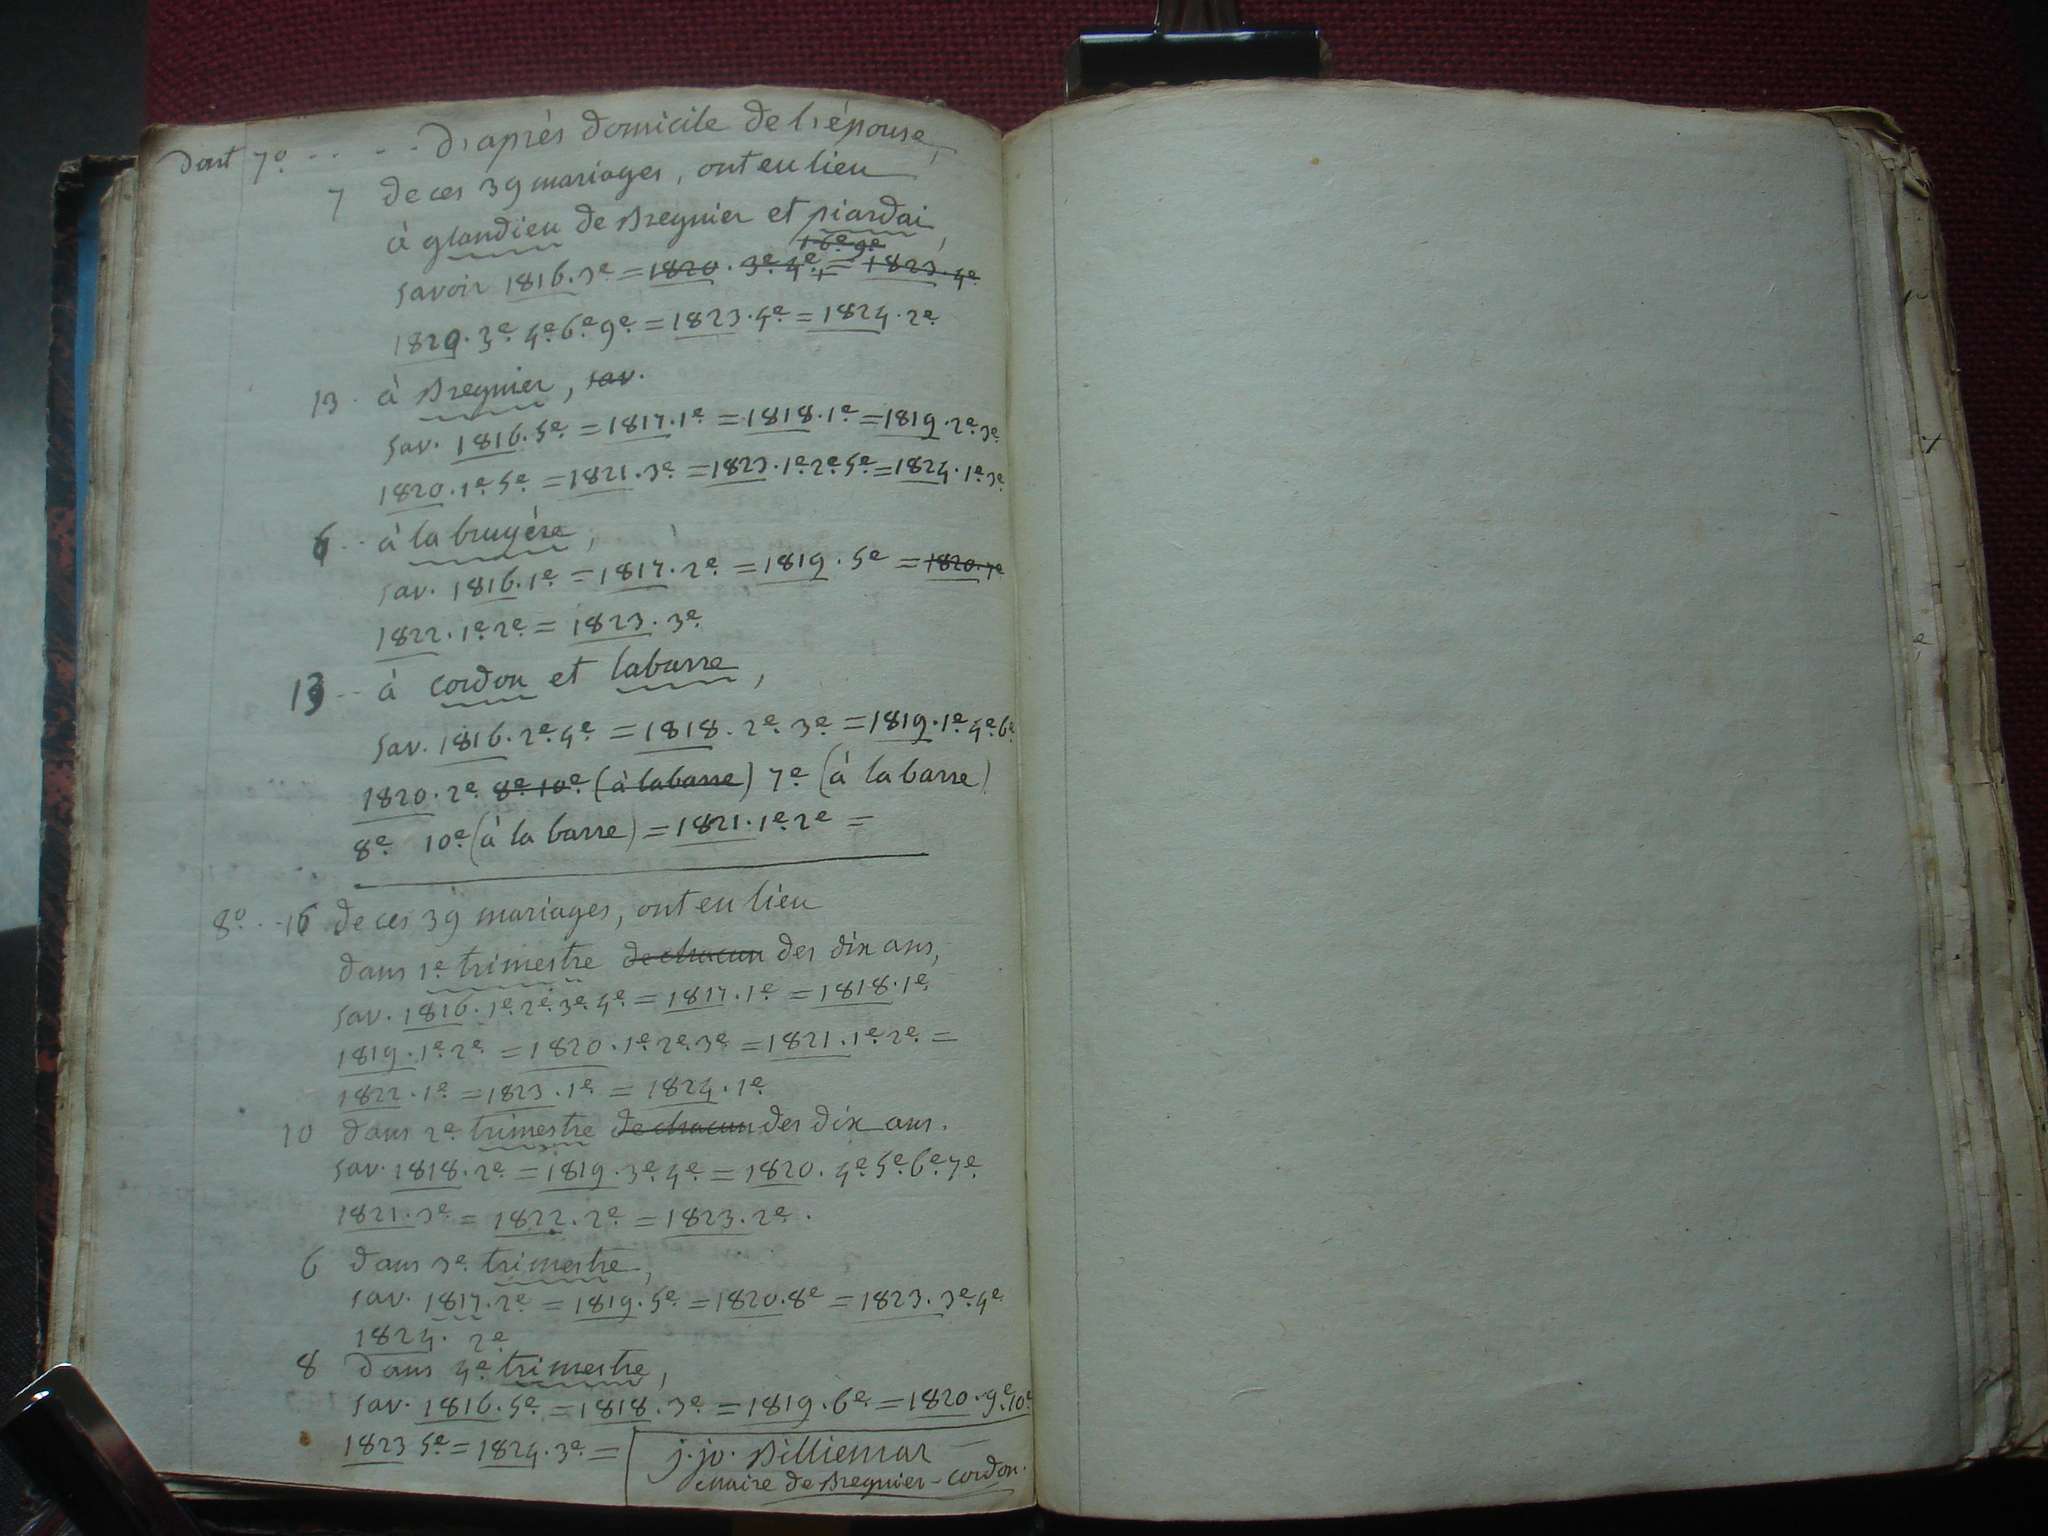 Dont 7º . . . . . D'après domicile de l'épouse,
7 de ces 39 mariages, ont eu lieu
à glandieu de Bregnier et piardai,
1 6e. 9e
savoir 1816. 3e = 1820. 3e. 4e. = 1823. 4e
1820. 3e. 4e. 6e. 9e. = 1823. 4e = 1824. 2e
13. à Bregnier, sav.
Sav. 1816. 5e = 1817. 1e = 1818. 1e = 1819. 2e. 3e.
1820. 1e. 5e. = 1821. 3e = 1823. 1e. 2e. 5e = 1824. 1e. 3e.
6 . . à la bruyére,
Sav. 1816. 1e = 1817. 2e. = 1819. 5e = 1820. 7e
1822. 1e. 2e. = 1823. 3e.
13 . . à cordon et labarre,
Sav. 1816. 2e. 4e = 1818. 2e. 3e = 1819. 1e. 4e. 6e.
1820. 2e. 8e. 10e (à labarre) 7e (à la barre)
8e. 10e. (à la barre) = 1821. 1e. 2e =
8º. . . 16 de ces 39 mariages, ont eu lieu
dans 1e trimestre de chacun des dix ans,
Sav. 1816. 1e. 2e. 3e. 4e. = 1817. 1e = 1818. 1e.
1819. 1e. 2e = 1820. 1e. 2e. 3e = 1821. 1e. 2e. =
1822. 1e. = 1823. 1e. = 1824. 1e.
10 dans 2e. trimestre de chacun des dix ans.
Sav. 1818. 2e = 1819. 3e. 4e. = 1820. 4e. 5e. 6e. 7e
1821. 3e = 1822. 2e = 1823. 2e.
6 dans 3e. trimestre,
sav. 1817. 2e = 1819. 5e. = 1820. 8e = 1823. 3e. 4e
1824. 2e
8 dans 4e trimestre,
sav. 1816. 5e. = 1818. 3e. = 1819. 6e. = 1820. 9e. 10e
1823 5e = 1824. 3e. = j. jo.
maire de Bregnier-Cordon.